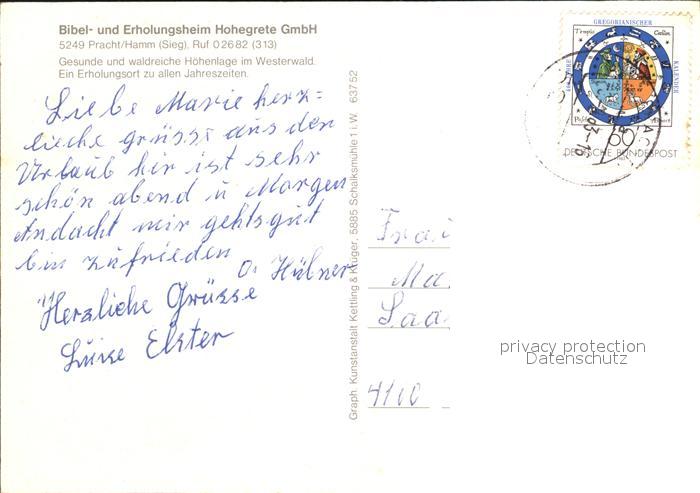 Bibel- und Erholungsheim Hohegrete GmbH
5249 Pracht/Hamm (Sieg), Ruf 0 26 82 (313)
Gesunde und waldreiche Höhenlage im Westerwald.
Ein Erholungsort zu allen Jahreszeiten.
Liebe Marie herz=
lieche grüsse aus den
Urlaub hir ist sehr
schön abend u Morgen
Andacht mir gehts gut
bin zufrieden
O. Hübner
Herzliche Grüsse
Luise Elster
Graph. Kunstanstalt Kettling & Krüger, 5885 Schalksmühle 1 i. W. 637 52
GREGORIANISCHER
KALENDER
DEUTSCHE BUNDESPOST
60
Frau
Ma
Saa
4100
privacy protection
Datenschutz